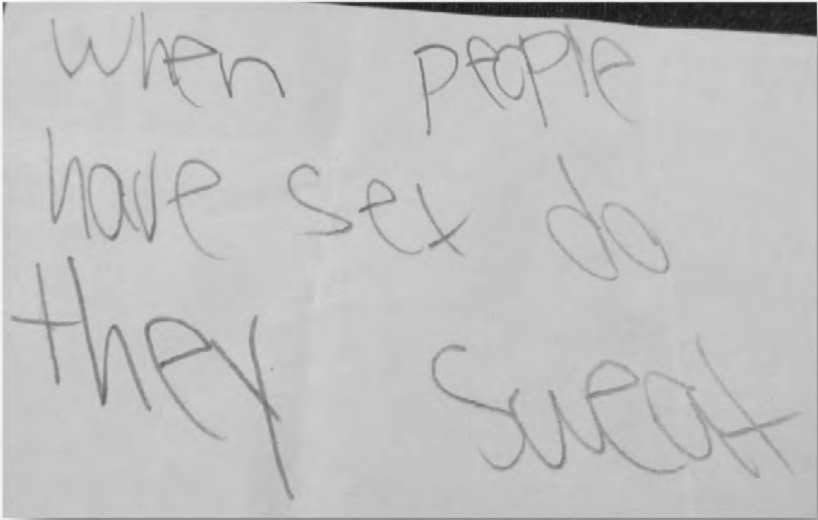 when people
have sex do
they sweat